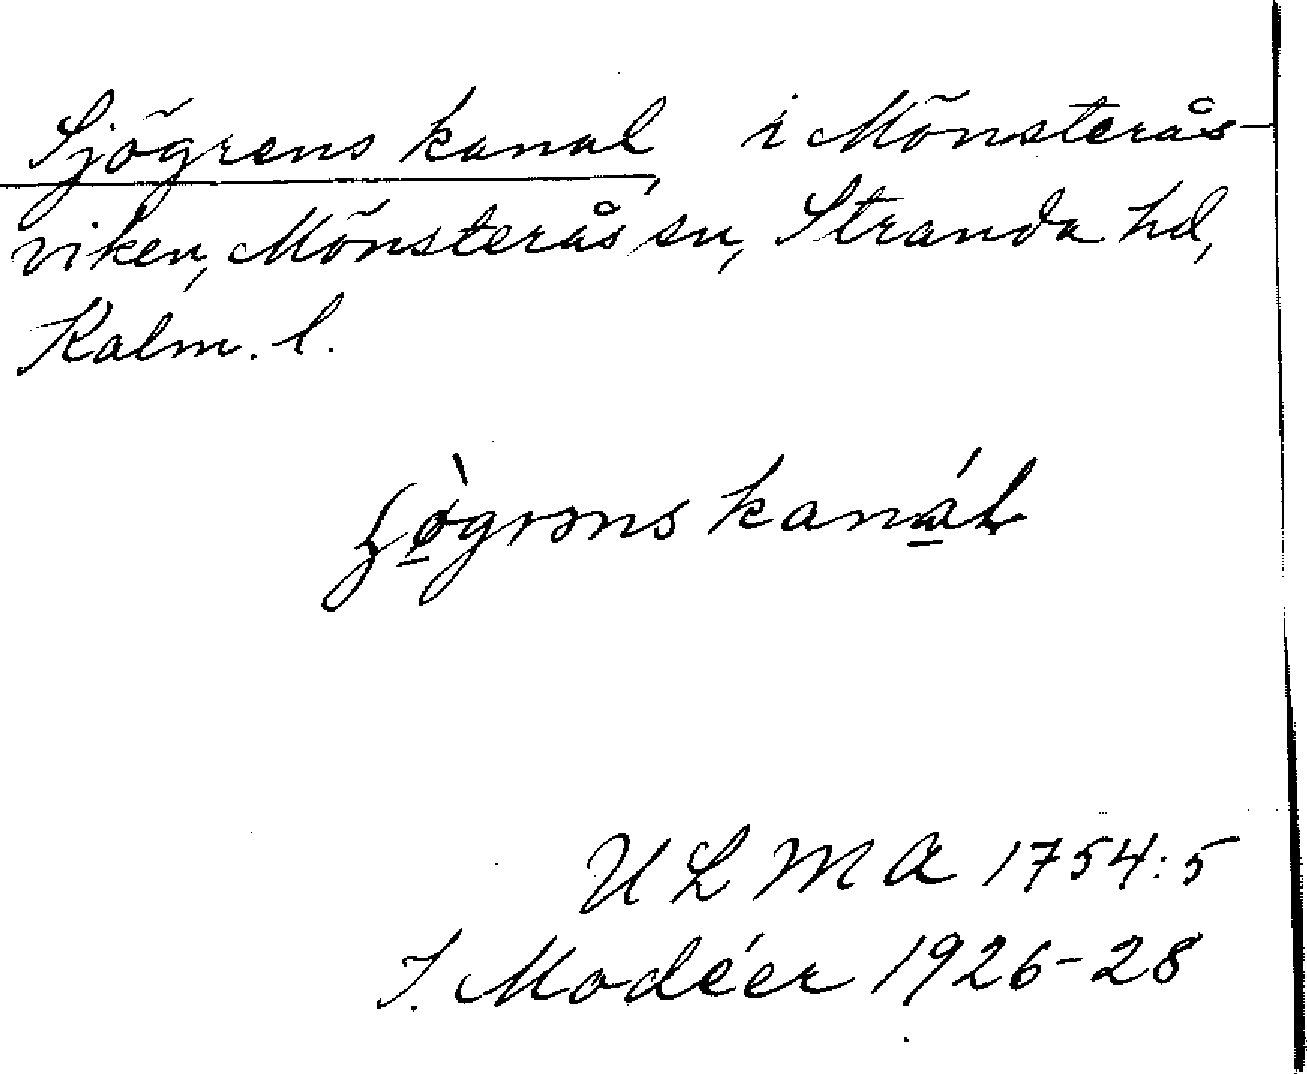 Sjögrens kanal i Mönsterås-
viken, Mönsterås sn, Stranda hd,
Kalm. l.
kanál
U L M A 1754:5
I. Modéer 1926-28